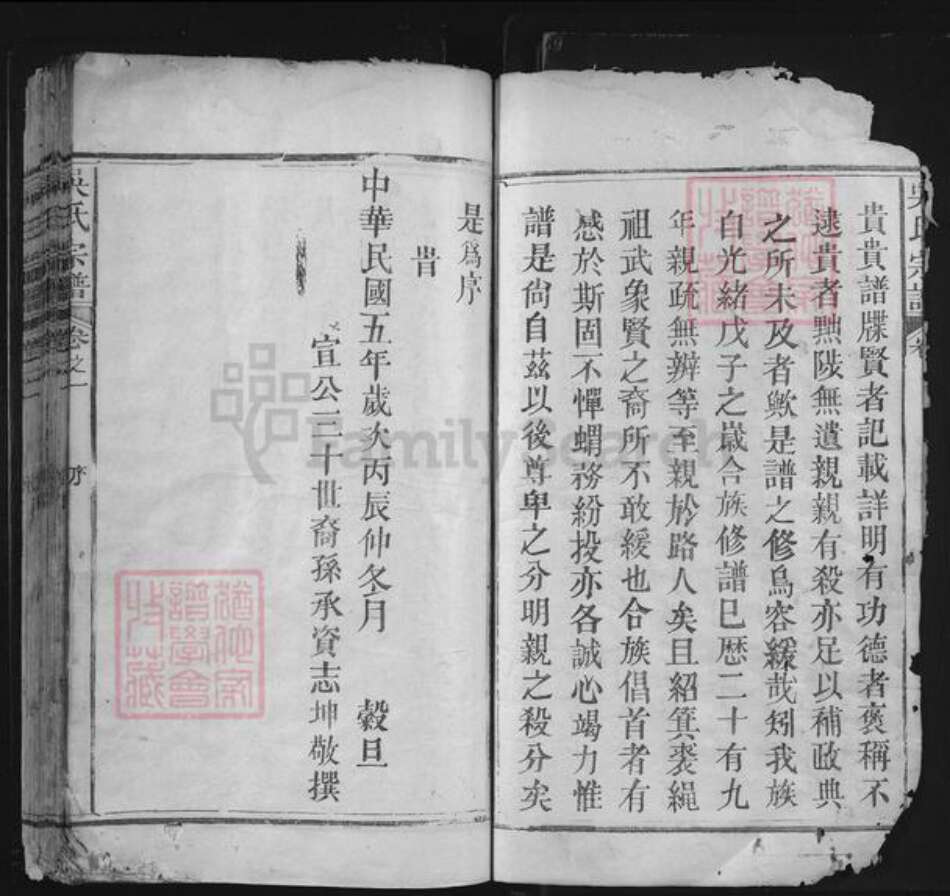 吳氏宗譜
貴貴譜牒賢者記載詳明有功德者褒稱不
逮貴者黜陟無遺親親有殺亦足以補政典
之所未及者歟是譜之修烏容緩哉矧我族
自光緒戊子之嵗合族修譜巳歷二十有九
年親疏無辨等至親於路人矣且紹箕裘繩
祖武象賢之裔所不敢緩也合族倡首者有
感於斯固不憚蝟務紛投亦各誠心竭力惟
譜是尙自茲以後尊卑之分明親之殺分矣
是爲序
旹
中華民國五年歲次丙辰仲冬月 穀旦
宣公二十世裔孫承資志坤敬撰
吳氏宗譜 卷之一 序
FamilySearch
譜學會
收藏